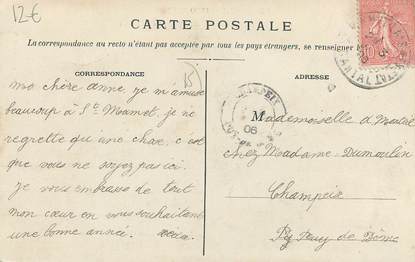 12€
CARTE POSTALE
La correspondance au recto n'étant pas acceptée par tous les pays étrangers, se renseigner
CORRESPONDANCE
ADRESSE
15
ma chère anne je m'amuse
beaucoup à St Mamet, je ne
regrette qu'une chose, c'est
que vous ne soyez pas ici.
Je vous embrasse de tout
mon cœur en vous souhaitant
une bonne année.
Mademoiselle
chez Madame Dumoulin
Champeix
Puy de Dôme
CHAMPEIX
06
CANTAL
10